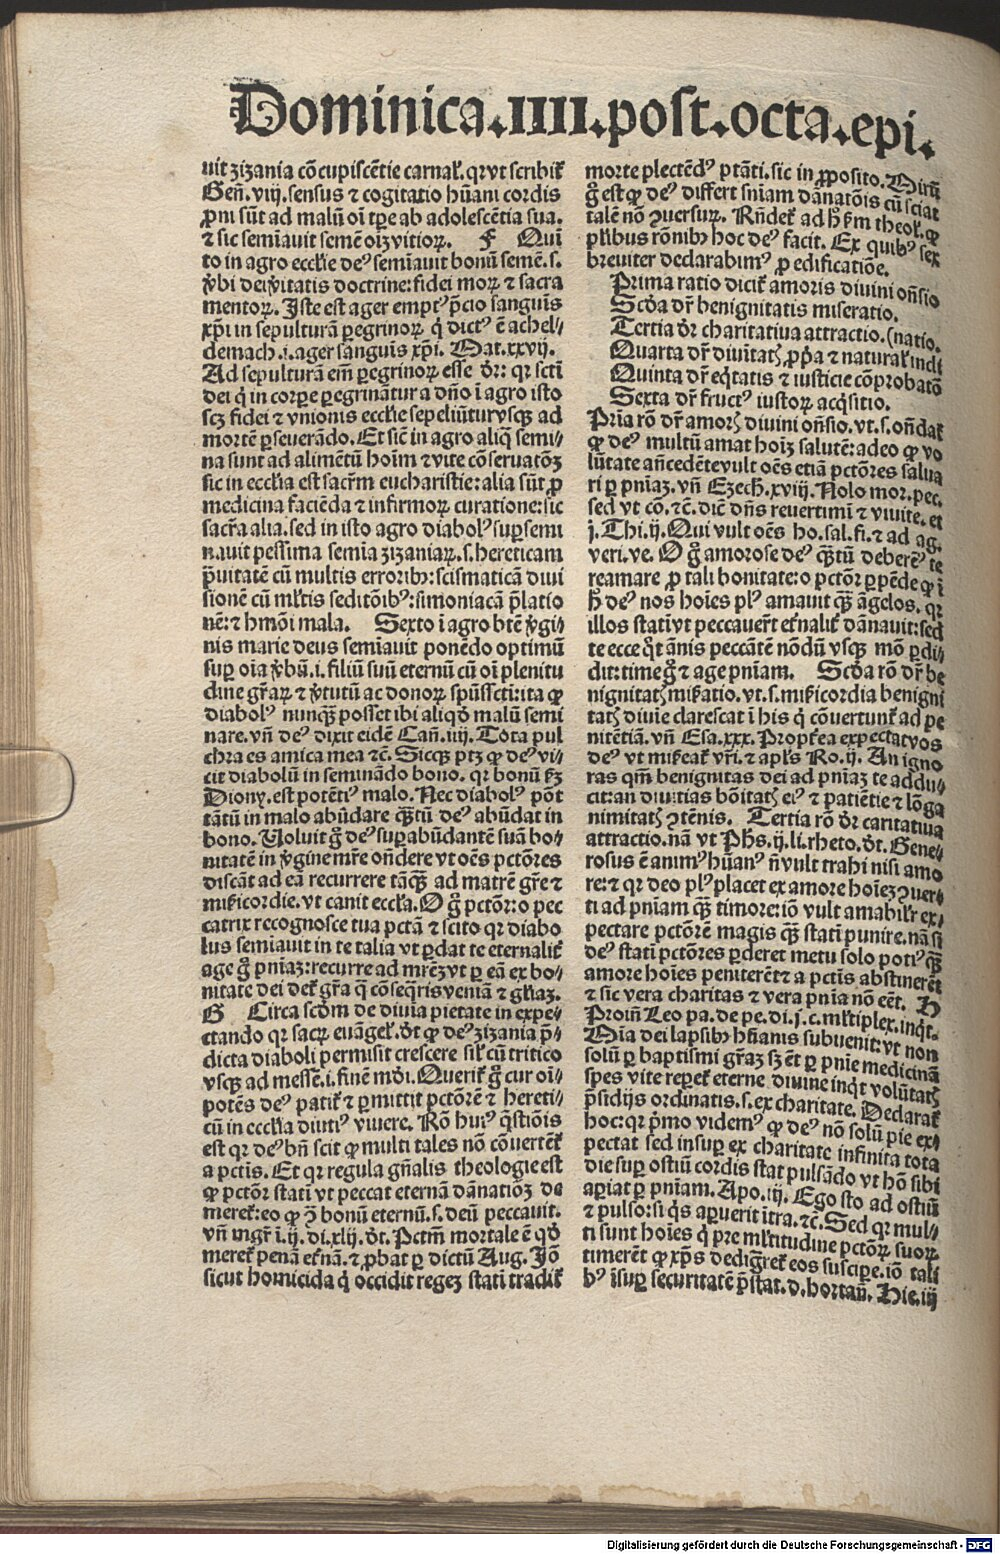 Dominica.IIII.post.octa.epi.
uit zizania cõcupiscẽtie carnal̃. qr vt scribit̃
Geñ. viij. sensus ⁊ cogitatio hũani cordis
ꝓni sũt ad malũ oĩ tꝑe ab adolescẽtia sua.
⁊ sic semĩauit semẽ oĩʒ vitioꝝ. F Quĩ
to in agro eccl̃ie deꝰ semĩauit bonũ semẽ. s.
v̾bi dei v̾itatis doctrine: fidei moꝝ ⁊ sacra
mentoꝝ. Iste est ager emptꝰ p̃cio sanguĩs
xp̃i in sepulturã ꝑegrinoꝝ q̇ dictꝰ ẽ achel⸗
demach .i. ager sanguĩs xp̃i. Mat. xxvij.
Ad sepulturã eĩm ꝑegrinoꝝ esse dr̃: qr sctĩ
dei q̇ in corꝑe ꝑegrinãtur a dño ĩ agro isto
scʒ fidei ⁊ vnionis eccl̃ie sepeliũtur vsqꝫ ad
mortẽ ꝑseuerãdo. Et sicẽ in agro aliq̃ semi⸗
na sunt ad alimẽtũ hoĩm ⁊ vite cõseruatõʒ
sic in eccl̃ia est sacr̃m eucharistie: alia sũt ꝓ
medicina faciẽda ⁊ infirmoꝝ curatione: sic
sacr̃a alia. sed in isto agro diabolꝰ suꝑsemi
nauit pessima semĩa zizaniaꝝ. s. hereticam
p̃uitatẽ cũ multis erroribꝫ: scismaticã diui
sionẽ cũ ml̃tis seditõibꝰ: simoniacã p̃latio
nẽ: ⁊ hmõi mala. Sexto ĩ agro btẽ v̾gi⸗
nis marie deus semĩauit ponẽdo optimũ
suꝑ oĩa v̾bũ .i. filiũ suũ eternũ cũ oĩ plenitu
dine gr̃aꝝ ⁊ v̾tutũ ac donoꝝ spũssctĩ: ita ꝙ
diabolꝰ nunqᷓꝫ posset ibi aliqd̾ malũ semi
nare. vñ deꝰ dixit eidẽ Cañ. iiij. Tota pul
chra es amica mea ⁊c̃. Sicqꝫ ptꝫ ꝙ deꝰ vi⸗
cit diabolũ in seminãdo bono. qr bonũ ẜʒ
Diony. est potẽtiꝰ malo. Nec diabolꝰ põt
tãtũ in malo abũdare qᷓꝫtũ deꝰ abũdat in
bono. Voluit g̊ deꝰ suꝑabũdantẽ suã bo⸗
nitatẽ in v̾gine mr̃e oñdere vt oẽs pctõres
discãt ad eã recurrere tãqᷓꝫ ad matrẽ gr̃e ⁊
mißicordie. vt canit eccl̃ia. O g̊ pctõr: o pec
catrix recognosce tua pctã ⁊ scito qr diabo
lus semĩauit in te talia vt ꝑdat te eternalit̃
age g̊ pniãʒ: recurre ad mr̃eʒ vt ꝑ eã ex bo⸗
nitate dei det̃ gr̃a q̃ cõseq̃ris veniã ⁊ gl̃iaʒ.
G Circa scd̾m de diuĩa pietate in expe⸗
ctando qr sacꝝ euãgel̃. dt̃ ꝙ deꝰ zizania p̃⸗
dicta diaboli permisit crescere sil̃ cũ tritico
vsqꝫ ad messẽ .i. finẽ mdĩ. Querit̃ g̊ cur oĩ⸗
potẽs deꝰ patit̃ ⁊ ꝑmittit pctõrẽ ⁊ hereti⸗
cũ in eccl̃ia diutiꝰ viuere. Rõ huiꝰ q̃stiõis
est qr deꝰ bñ scit ꝙ multi tales nõ cõuertẽt̃
a pctĩs. Et qr regula gñalis theologie est
ꝙ pctõr statĩ vt peccat eternã dãnatiõʒ de
meret̃: eo ꝙ ꝯ̃ bonũ eternũ. s. deũ peccauit.
vñ mgr̃ ĩ. ij. di. xlij. dt̃. Pctm̃ mortale ẽ qd̾
meret̃ penã et̾nã. ⁊ ꝓbat ꝑ dictũ Aug. Iõ
sicut homicida q̇ occidit regeʒ statĩ tradit̃
morte plectẽdꝰ ptãti. sic in ꝓposito. Mirũ
g̊ est ꝙ deꝰ differt sñiam dãnatõis cũ sciat
talẽ nõ ꝯuersuꝝ. Rñdet̃ ad h̾ ẜm theol̃. ꝙ
pl̃ibus rõnibꝫ hoc deꝰ facit. Ex quibꝰ sex
breuiter declarabimꝰ ꝓ edificatiõe.
Prima ratio dicit̃ amoris diuini oñsio
Scd̾a dr̃ benignitatis miseratio.
Tertia dr̃ charitatiua attractio. (natio.
Quarta dr̃ diuĩtatꝭ ꝓp̃a ⁊ natural̃ incli
Quinta dr̃ eq̇tatis ⁊ iusticie cõprobatõ
Sexta dr̃ fructꝰ iustoꝝ acq̇sitio.
Prĩa rõ dr̃ amorꝭ diuini oñsio. vt. s. oñdat̃
ꝙ deꝰ multũ amat hoĩʒ salutẽ: adeo ꝙ vo
lũtate añcedẽte vult oẽs etiã pctõres salua
ri ꝑ pniãʒ. vñ Ezech. xviij. Nolo mor. pec.
sed vt cõ. ⁊c̃. diĉ dñs reuertimĩ ⁊ viuite. et
j. Thi. ij. Qui vult oẽs ho. sal. fi. ⁊ ad ag.
veri. ve. O g̊ amorose deꝰ qᷓꝫtũ deberẽꝰ te
reamare ꝓ tali bonitate: o pctõr ꝑpẽde ꝙ ĩ
h̾ deꝰ nos hoĩes plꝰ amauit qᷓꝫ ãgelos. qr
illos statĩ vt peccauer̃t et̾nalit̃ dãnauit: sed
te ecce q̊t ãnis peccãtẽ nõdũ vsqꝫ mõ ꝑdi⸗
dit: time g̊ ⁊ age pniãm. Scd̾a rõ dr̃ be
nignitatꝭ mißatio. vt. s. mißicordia benigni
tatꝭ diuĩe clarescat ĩ his q̇ cõuertunt̃ ad pe
nitẽtiã. vñ Esa. xxx. Propt̾ea expectat vos
deꝰ vt miß eat̃ vr̃i. ⁊ apl̃s Ro. ij. An igno
ras qm̃ benignitas dei ad pniãʒ te addu⸗
cit: an diuitias bõitatꝭ eiꝰ ⁊ patiẽtie ⁊ lõga
nimitatꝭ ꝯtẽnis. Tertia rõ dr̃ caritatiua
attractio. nã vt Ph̃s. ij. li. rheto. dt̃. Gene⸗
rosus ẽ animꝰ hũanꝰ ñ vult trahi nisi amo
re: ⁊ qr deo plꝰ placet ex amore hoĩeʒ ꝯuer⸗
ti ad pniãm qᷓꝫ timore: iõ vult amabilr̃ ex⸗
pectare pctõrẽ magis qᷓꝫ statĩ punire. nã si
deꝰ statĩ pctõres ꝑderet metu solo potiꝰ qᷓꝫ
amore hoĩes peniterẽt ⁊ a pctĩs abstinerẽt
⁊ sic vera charitas ⁊ vera pnĩa nõ eẽt. H
Proin̄ Leo pa. de pe. di. j. c. ml̃tiplex. inq̇t.
Mĩa dei lapsibꝫ hũanis subuenit: vt non
solũ ꝑ baptismi gr̃aʒ sꝫ et̃ ꝑ pnĩe medicinã
spes vite reꝑet̃ eterne diuine inq̇t volũtatꝭ
p̃sidijs ordinatis. s. ex charitate. Declarat̃
hoc: qr p̃mo videmꝰ ꝙ deꝰ nõ solũ pie ex⸗
pectat sed insuꝑ ex charitate infinita tota
die suꝑ ostiũ cordis stat pulsãdo vt hõ sibi
aꝑiat ꝑ pniãm. Apo. iij. Ego sto ad ostiũ
⁊ pulso: si q̇s aꝑuerit ĩtra. ⁊c̃. Sed qr mul⸗
ti sunt hoĩes q̇ pre ml̃titudine pctõꝝ suoꝝ
timerẽt ꝙ xp̃s dedigr̃et̃ eos suscipe. iõ tali
bꝰ ĩsuꝑ securitatẽ p̃stat. d. hortañ. Hie. iij
Digitalisierung gefördert durch die Deutsche Forschungsgemeinschaft - DFG